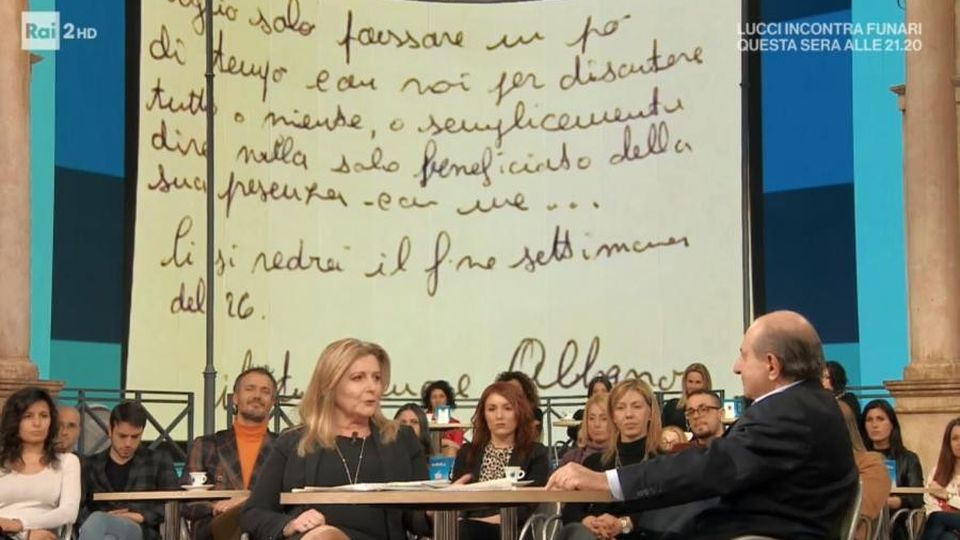 Rai 2 HD
LUCCI INCONTRA FUNARI
QUESTA SERA ALLE 21.20
solo passare un pò
di tempo con voi per discutere
tutto o niente, o semplicemente
dire nulla solo beneficiato della
sua presenza con me...
Ci si vedrà il fine settimana
del 26.
Albano